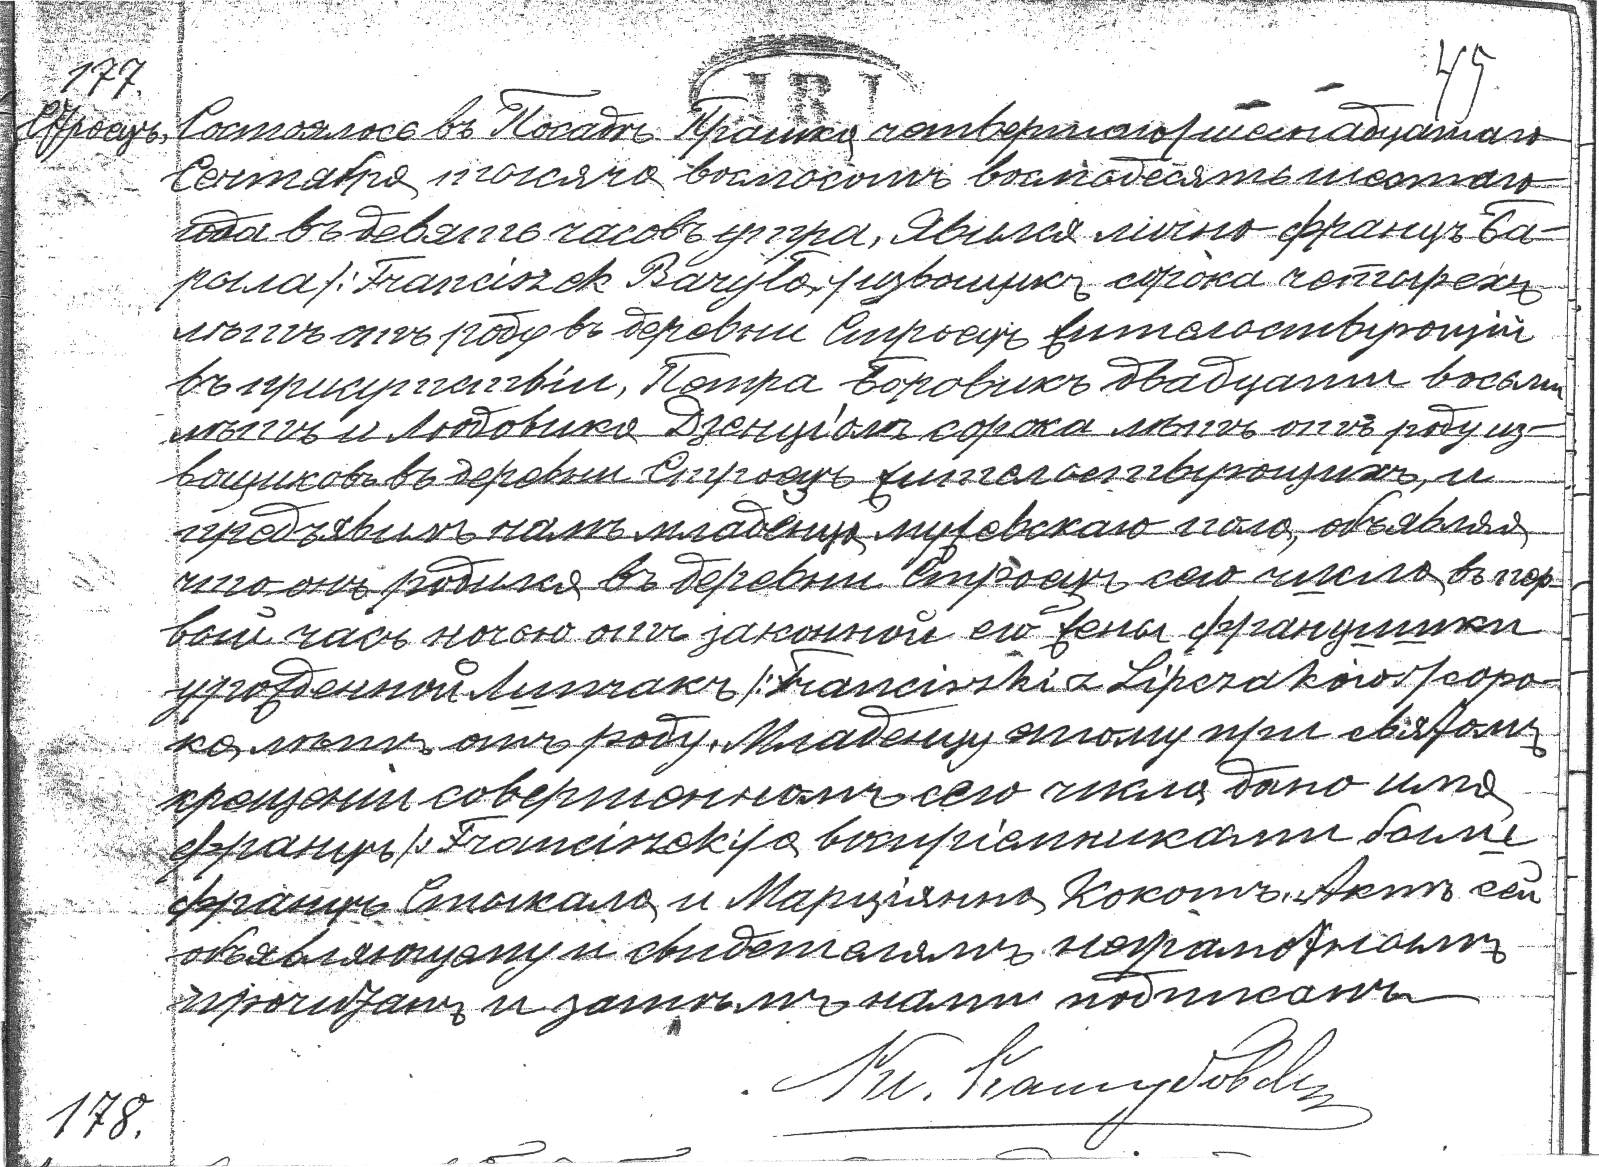 177.
45
IRI
Строецъ, Состоялось въ Посадѣ Прашка четвертаго/шестнадцатаго
Сентября тысяча восмосотъ восмодесять шестаго
года въ девять часовъ утра, Явился лично францъ Ба-
рыла /: Franciszek Baryła :/ извощикъ сорока четырехъ
лѣтъ отъ роду въ деревни Строецъ жительствующій
въ присутствіи, Петра Боровикъ двадцати восьми
лѣтъ и Людовика Дзенціолъ сорока лѣтъ отъ роду из-
вощиковъ въ деревни Строецъ жительствующихъ, и
предъявилъ намъ младенца мужескаго пола, объявляя
что онъ родился въ деревни Строецъ сего числа въ пер-
вый часъ ночью отъ законной его жены францишки
урожденной Липчакъ /: Franciszki z Lipczaków :/ соро-
ка лѣтъ отъ роду. Младенцу этому при святомъ
крещеніи совершенномъ сего числа дано имя
францъ /: Franciszek :/ а воспріемниками были
францъ Стыкала и Марціянна Кокотъ. Актъ сей
объявляющему и свидетелямъ неграмотнымъ
прочитанъ и затѣмъ нами подписанъ
Кс.
178.